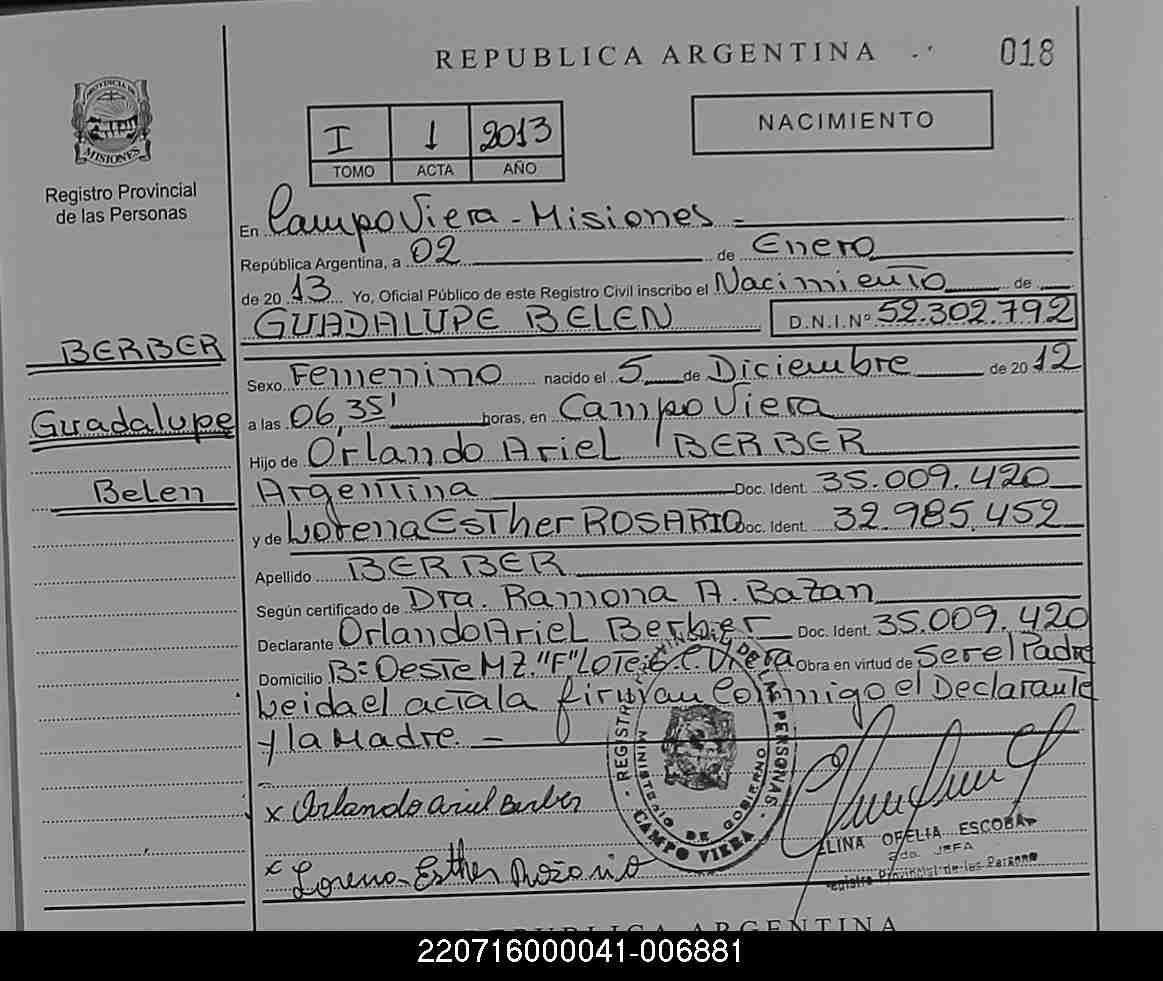 REPUBLICA ARGENTINA
018
PROVINCIA DE
MISIONES
Registro Provincial
de las Personas
I 1 2013
TOMO ACTA AÑO
NACIMIENTO
En Campo Viera - Misiones
República Argentina, a 02 de Enero
de 2013 Yo, Oficial Público de este Registro Civil inscribo el Nacimiento de
GUADALUPE BELEN D.N.I.Nº 52.302.792
BERBER
Guadalupe
Belen
Sexo Femenino nacido el 5 de Diciembre de 2012
a las 06,35' horas, en Campo Viera
Hijo de Orlando Ariel BERBER
Argentina Doc. Ident. 35.009.420
y de Lorena Esther ROSARIO Doc. Ident. 32.985.452
Apellido BERBER
Según certificado de Dra. Ramona A. Bazan
Declarante Orlando Ariel Berber Doc. Ident. 35.009.420
Domicilio B= Oeste MZ. "F" LOTE: 6. C. Viera Obra en virtud de Ser el Padre
Leida el acta la firman Conmigo el Declarante
y la Madre. —
x Orlando ariel Berber
x Lorena Esther Rosario
REGISTRO DE LAS PERSONAS
MINISTERIO DE GOBIERNO
CAMPO VIERA
ELINA OFELIA ESCOBAR
2do. JEFA
Registro Provincial de las Personas
REPUBLICA ARGENTINA
220716000041-006881